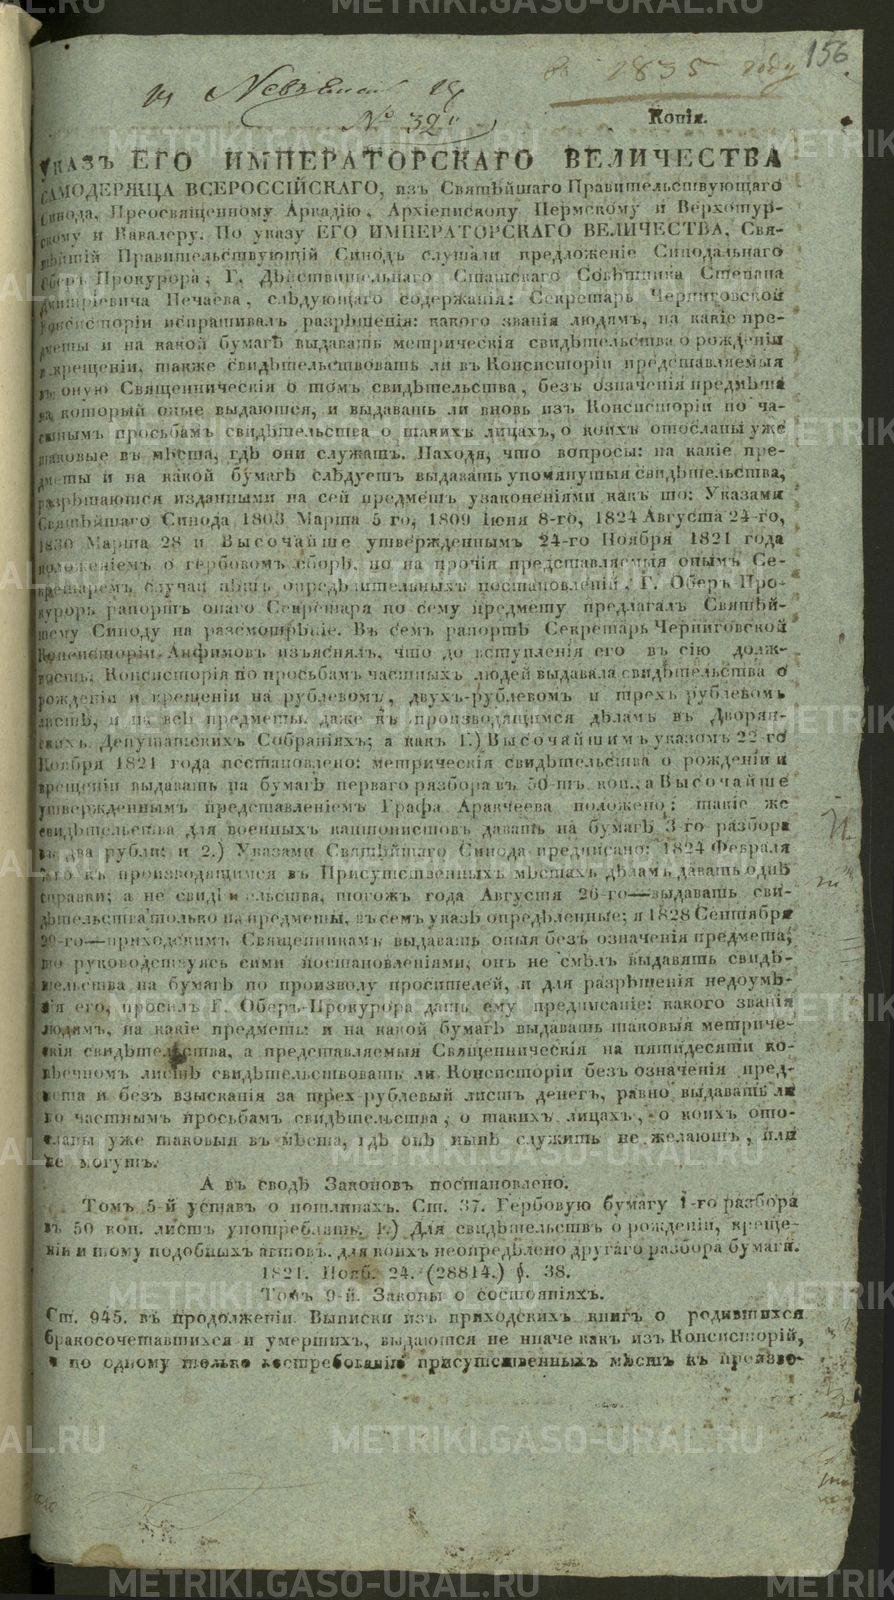 156
въ 1835 году
№ 32
Копія.
УКАЗЪ ЕГО ИМПЕРАТОРСКАГО ВЕЛИЧЕСТВА
САМОДЕРЖЦА ВСЕРОССІЙСКАГО, изъ Святѣйшаго Правительствующаго
Синода, Преосвященному Аркадію, Архіепископу Пермскому и Верхотур-
скому и Кавалеру. По указу ЕГО ИМПЕРАТОРСКАГО ВЕЛИЧЕСТВА, Свя-
тѣйшій Правительствующій Синодъ слушали предложеніе Синодальнаго
Оберъ Прокурора, Г. Дѣйствительнаго Статскаго Совѣтника Степана
Дмитріевича Нечаева, слѣдующаго содержанія: Секретарь Черниговской
Консисторіи испрашивалъ разрѣшенія: какого званія людямъ, на какіе пре-
дметы и на какой бумагѣ выдавать метрическія свидѣтельства о рожденіи
и крещеніи, также свидѣтельствовать ли въ Консисторіи представляемыя
въ оную Священническія о томъ свидѣтельства, безъ означенія предмѣта
на который оные выдаются, и выдавать ли вновь изъ Консисторіи по ча-
стнымъ просьбамъ свидѣтельства о такихъ лицахъ, о коихъ отосланы уже
таковые въ мѣста, гдѣ они служатъ. Находя, что вопросы: на какіе пре-
дметы и на какой бумагѣ слѣдуетъ выдавать упомянутыя свидѣтельства,
разрѣшаются изданными на сей предметъ узаконеніями какъ то: Указами
Святѣйшаго Синода 1803 Марта 5 го, 1809 Іюня 8-го, 1824 Августа 24-го,
1830 Марта 28 и Высочайше утвержденнымъ 24-го Ноября 1821 года
положеніемъ о гербовомъ сборѣ, но на прочія представляемыя онымъ Се-
кретаремъ случаи нѣтъ опредѣлительныхъ постановленій, Г. Оберъ Про-
куроръ рапортъ онаго Секретаря по сему предмету предлагалъ Святѣй-
шему Синоду на разсмотрѣніе. Въ семъ рапортѣ Секретарь Черниговской
Консисторіи Анфимовъ изъяснялъ, что до вступленія его въ сію долж-
ность, Консисторія по просьбамъ частныхъ людей выдавала свидѣтельства о
рожденіи и крещеніи на рублевомъ, двухъ-рублевомъ и трехъ рублевомъ
листѣ, и на всѣ предметы, даже къ производящимся дѣламъ въ Дворян-
скихъ Депутатскихъ Собраніяхъ; а какъ 1.) Высочайшимъ указомъ 22-го
Ноября 1821 года постановлено: метрическія свидѣтельства о рожденіи и
крещеніи выдавать на бумагѣ перваго разбора въ 50-тъ коп., а Высочайше
утвержденнымъ представленіемъ Графа Аракчеева положено: такіе же
свидѣтельства для военныхъ кантонистовъ давать на бумагѣ 3-го разбора
въ два рубли; и 2.) Указами Святѣйшаго Синода предписано: 1824 Февраля
къ производящимся въ Присутственныхъ мѣстахъ дѣламъ давать однѣ
справки; а не свидѣтельства, тогожъ года Августа 26-го—выдавать сви-
дѣтельства только на предметы, въ семъ указѣ опредѣленные; а 1828 Сентября
20-го—приходскимъ Священникамъ выдавать оныя безъ означенія предмета;
то руководствуясь сими постановленіями, онъ не смѣлъ выдавать свидѣ-
тельства на бумагѣ по произволу просителей, и для разрѣшенія недоумѣ-
нія его, просилъ Г. Оберъ-Прокурора дать ему предписаніе: какого званія
людямъ, на какіе предметы и на какой бумагѣ выдавать таковыя метриче-
скія свидѣтельства, а представляемыя Священническія на пятидесяти ко-
пѣечномъ листѣ свидѣтельствовать ли Консисторіи безъ означенія пред-
мета и безъ взысканія за трех рублевый листъ денегъ, равно выдавать ли
по частнымъ просьбамъ свидѣтельства, о такихъ лицахъ, о коихъ ото-
сланы уже таковыя въ мѣста, гдѣ онѣ нынѣ служить не желаютъ, или
не могутъ.
А въ сводѣ Законовъ постановлено.
Томъ 5-й уставъ о пошлинахъ. Ст. 37. Гербовую бумагу 1-го разбора
въ 50 коп. листъ употреблять. 1.) Для свидѣтельствъ о рожденіи, креще-
ніи и тому подобныхъ актовъ, для коихъ неопредѣлено другаго разбора бумаги.
1821. Нояб. 24. (28814.) §. 38.
Томъ 9-й. Законы о состояніяхъ.
Ст. 945. въ продолженіи Выписки изъ приходскихъ книгъ о родившихся
бракосочетавшихся и умершихъ, выдаются не иначе какъ изъ Консисторій,
и по одному только востребованію присутственныхъ мѣстъ къ произво-